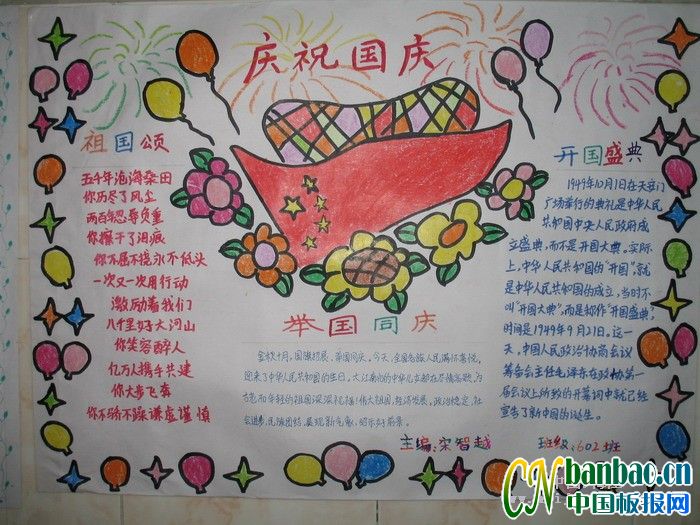 庆祝国庆
祖国颂
五千年沧海桑田
你历尽了风尘
两百年忍辱负重
你擦干了泪痕
你不屈不挠永不低头
一次又一次用行动
激励着我们
八千里好大河山
你笑容醉人
亿万人携手共建
你大步飞奔
你不骄不躁谦虚谨慎
举国同庆
金秋十月,国旗招展、举国同庆。今天,全国各族人民满怀喜悦,
迎来了中华人民共和国的生日。大江南北的中华儿女都在尽情歌歌,为
古老而年轻的祖国深深祝福!伟大祖国,经济发展,政治稳定,社
会进步,民族团结,展现新气象,昭示好前景。
开国盛典
1949年10月1日在天安门
广场举行的典礼是中华人民
共和国中央人民政府成
立盛典,而不是开国大典。实际
上,中华人民共和国的"开国",就
是中华人民共和国的成立,当时不
叫"开国大典",而是称作"开国盛典,
时间是1949年9月21日。这一
天,中国人民政治协商会议
筹备会主任毛泽东在政协第一
届会议上所致的开幕词中就已经
宣告了新中国的诞生。
主编:宋智越
班级:602班
CNbanbao.cn
中国板报网